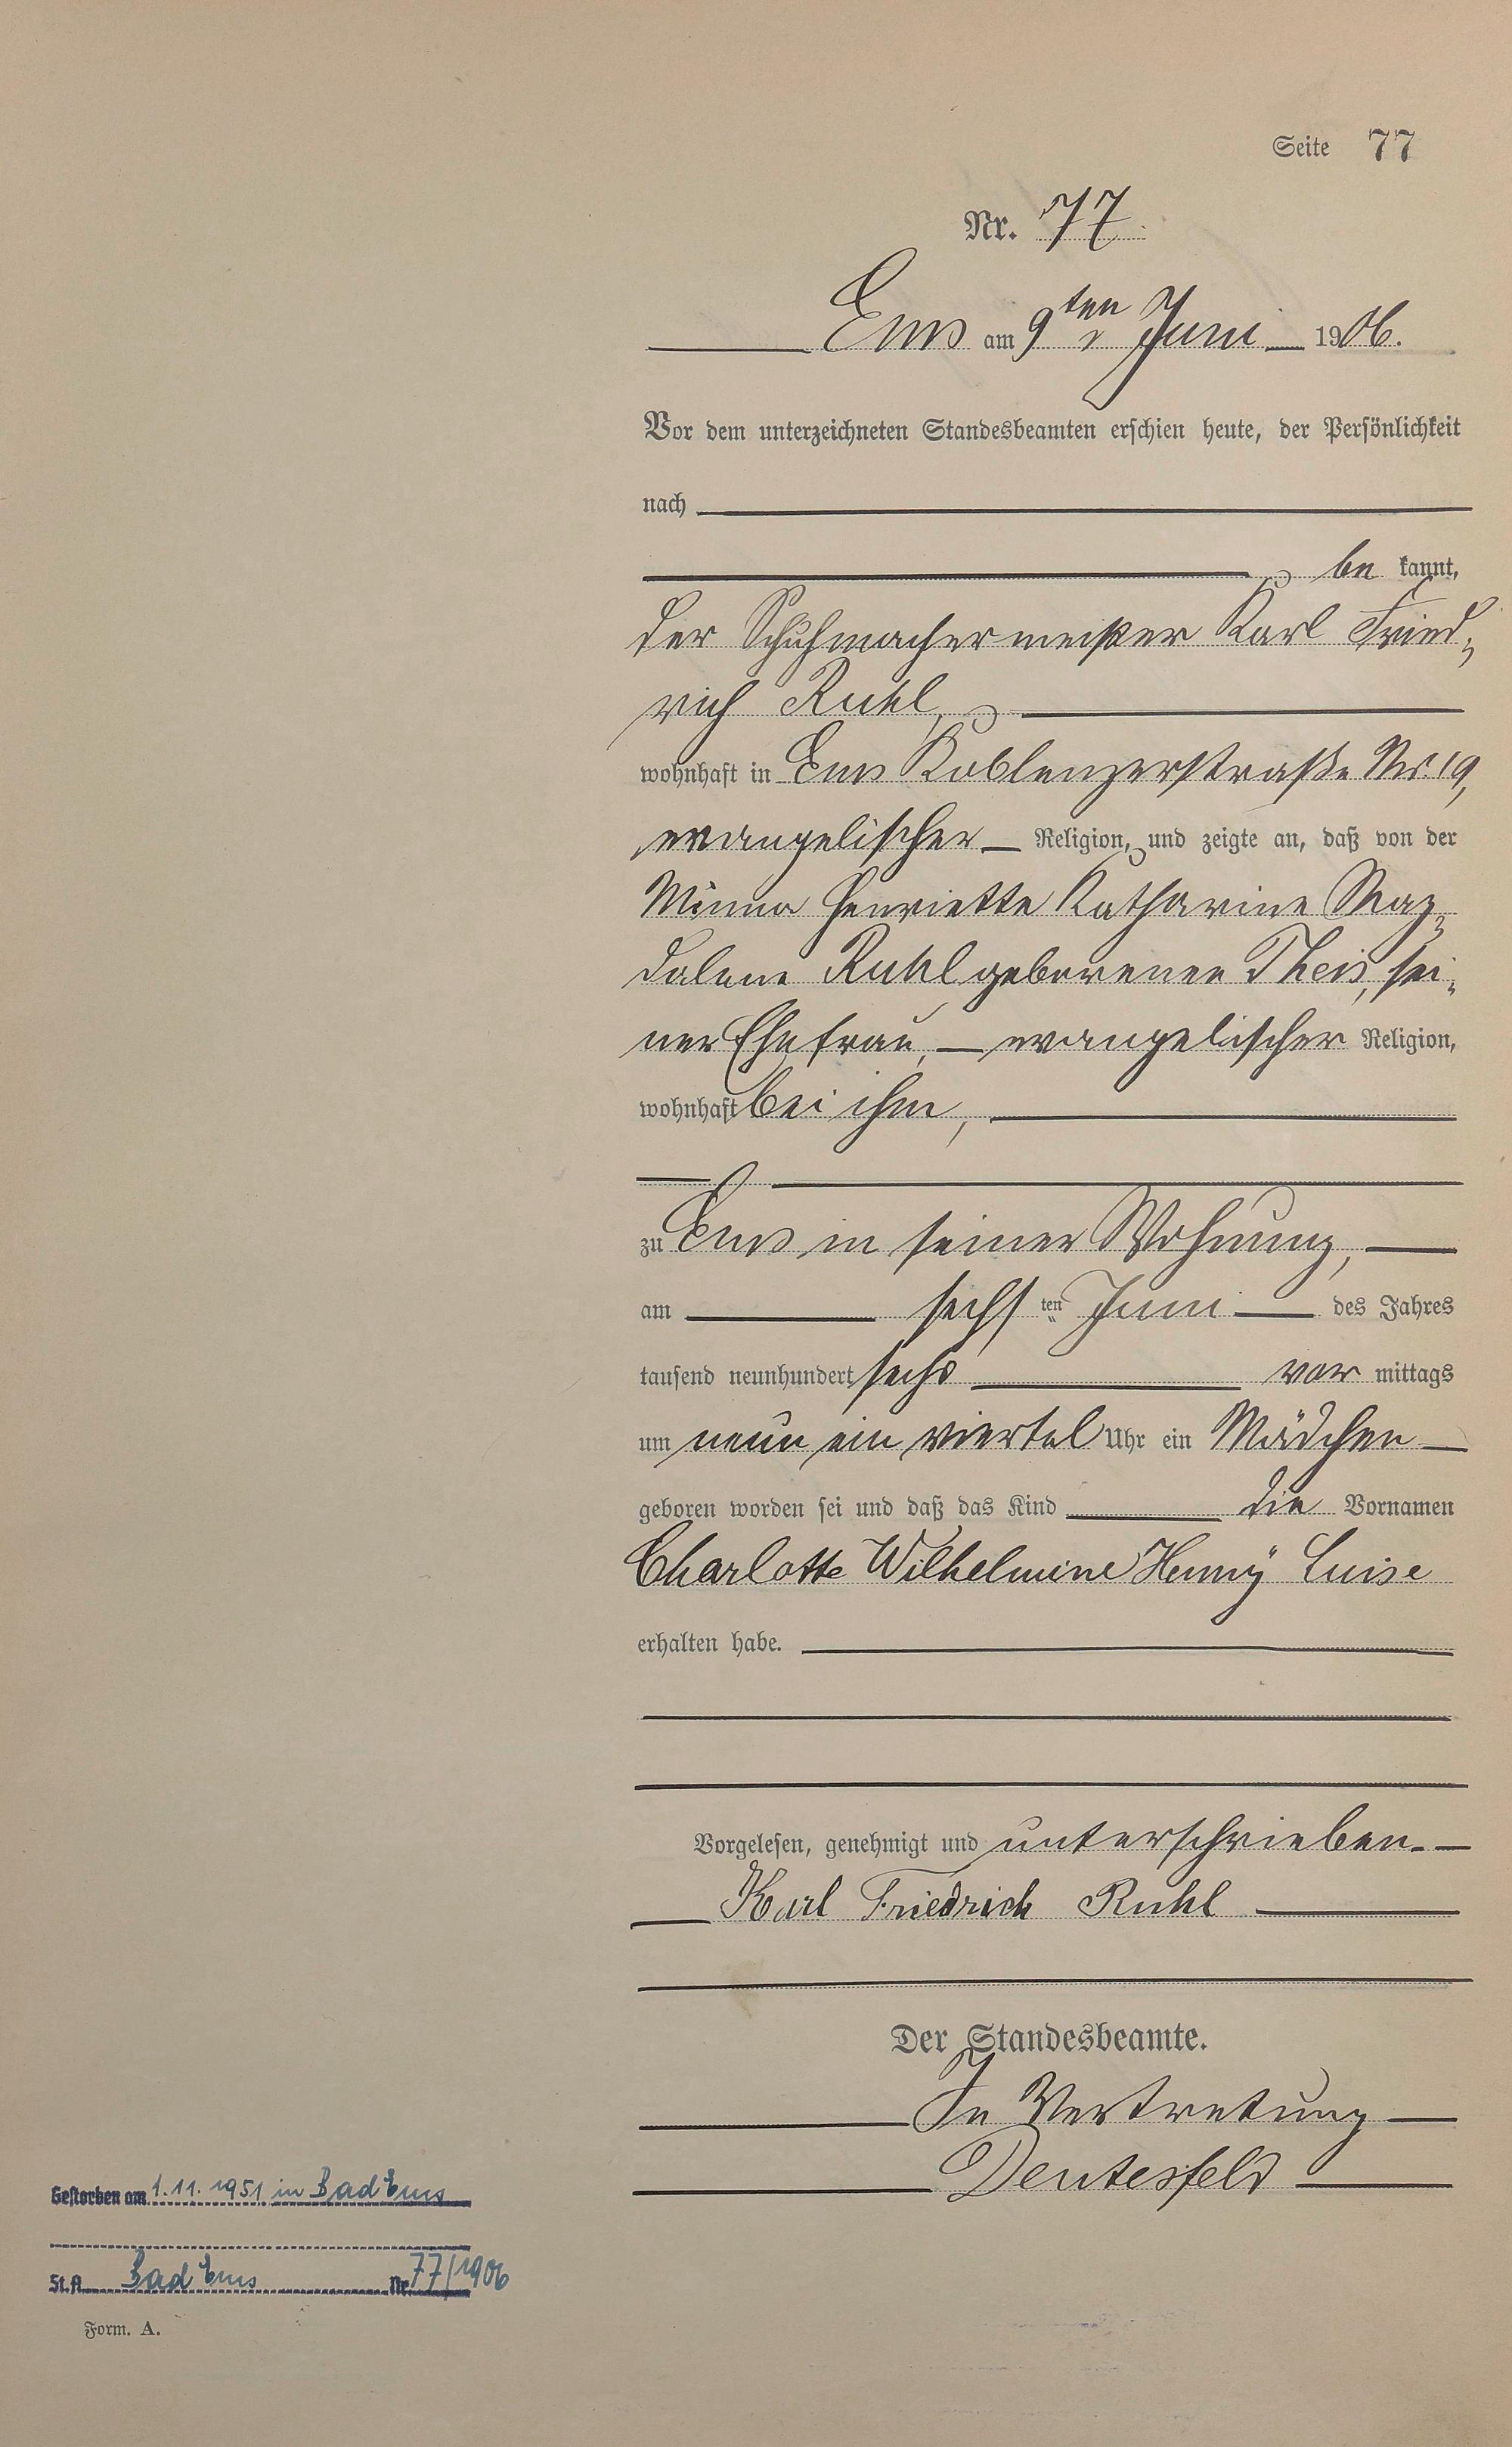 Seite 77
Nr. 77
Ems am 9ten Juni 1906.
Vor dem unterzeichneten Standesbeamten erschien heute, der Persönlichkeit
nach
be kannt,
der Schuhmachermeister Karl Fried-
rich Ruhl,
wohnhaft in Ems Koblenzerstraße Nr. 19,
evangelischer Religion, und zeigte an, daß von der
Minna Henriette Katharine Mag-
dalene Ruhl geborenen Theis, sei-
ner Ehefrau, evangelischer Religion,
wohnhaft bei ihm,
zu Ems in seiner Wohnung,
am sechsten Juni des Jahres
tausend neunhundert sechs vor mittags
um neun ein viertel Uhr ein Mädchen
geboren worden sei und daß das Kind die Vornamen
Charlotte Wilhelmine Henny Luise
erhalten habe.
Vorgelesen, genehmigt und unterschrieben.
Karl Friedrich Ruhl
Der Standesbeamte.
In Vertretung
Deutesfeld
Gestorben am 1.11.1951 in Bad Ems
St.A. Bad Ems Nr. 77/1906
Form. A.